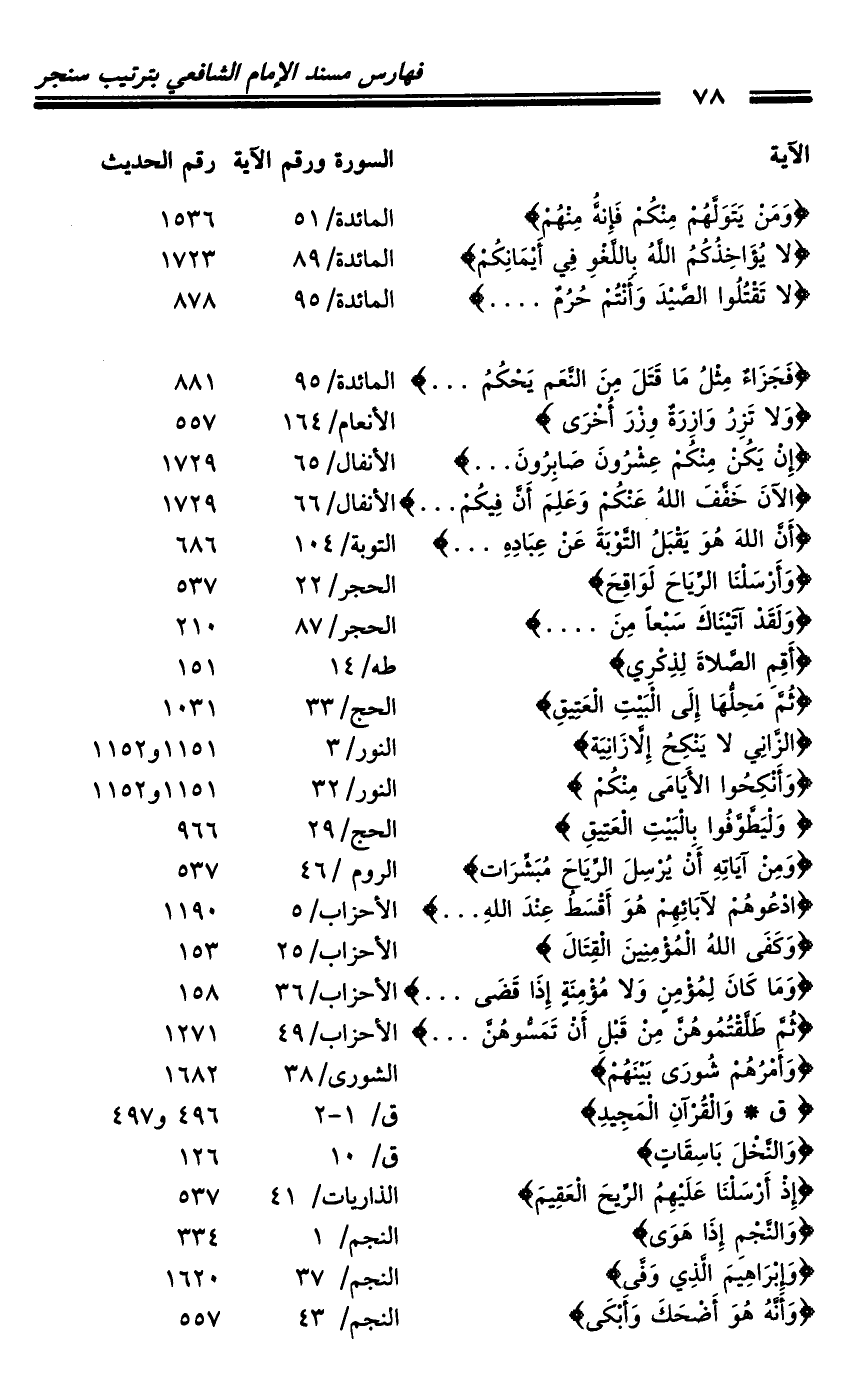 فهارس مسند الإمام الشافعي بترتيب سنجر
٧٨
الآية السورة ورقم الآية رقم الحديث
﴿وَمَنْ يَتَوَلَّهُمْ مِنْكُمْ فَإِنهُّ مِنْهُمْ﴾ المائدة/ ٥١ ١٥٣٦
﴿لا يُؤَاخِذُكُمُ اللَّهُ بِاللَّغْوِ فِي أَيْمَانِكُمْ﴾ المائدة/ ٨٩ ١٧٢٣
﴿لا تَقْتُلُوا الصَّيْدَ وَأَنْتُمْ حُرُمٌ ....﴾ المائدة/ ٩٥ ٨٧٨
﴿فَجَزَاءٌ مِثْلُ مَا قَتَلَ مِنَ النَّعَمِ يَحْكُمُ ...﴾ المائدة/ ٩٥ ٨٨١
﴿وَلا تَزِرُ وَازِرَةٌ وِزْرَ أُخْرَى ﴾ الأنعام/ ١٦٤ ٥٥٧
﴿إِنْ يَكُنْ مِنْكُمْ عِشْرُونَ صَابِرُونَ...﴾ الأنفال/ ٦٥ ١٧٢٩
﴿الآنَ خَفَّفَ اللهُ عَنْكُمْ وَعَلِمَ أَنَّ فِيكُمْ...﴾الأنفال/ ٦٦ ١٧٢٩
﴿أَنَّ اللهَ هُوَ يَقْبَلُ التَّوْبَةَ عَنْ عِبَادِهِ ...﴾ التوبة/ ١٠٤ ٦٨٦
﴿وَأَرْسَلْنَا الرِّيَاحَ لَوَاقِحَ﴾ الحجر/ ٢٢ ٥٣٧
﴿وَلَقَدْ آتَيْنَاكَ سَبْعاً مِنَ ....﴾ الحجر/ ٨٧ ٢١٠
﴿أَقِمِ الصَّلاةَ لِذِكْرِي﴾ طه/ ١٤ ١٥١
﴿ثُمَّ مَحِلُّهَا إِلَى الْبَيْتِ الْعَتِيقِ﴾ الحج/ ٣٣ ١٠٣١
﴿الزَّانِي لا يَنْكِحُ إِلَّازَانِيَة﴾ النور/ ٣ ١١٥١و١١٥٢
﴿وَأَنْكِحُوا الأَيَامَى مِنْكُمْ ﴾ النور/ ٣٢ ١١٥١و١١٥٢
﴿ وَلْيَطَّوَّفُوا بِالْبَيْتِ الْعَتِيقِ ﴾ الحج/ ٢٩ ٩٦٦
﴿وَمِنْ آيَاتِهِ أَنْ يُرْسِلَ الرِّيَاحَ مُبَشِّرَات﴾ الروم /٤٦ ٥٣٧
﴿ادْعُوهُمْ لآبَائِهِمْ هُوَ أَقْسَطُ عِنْدَ اللهِ...﴾ الأحزاب/ ٥ ١١٩٠
﴿وَكَفَى اللهُ الْمُؤْمِنِينَ الْقِتَالَ ﴾ الأحزاب/ ٢٥ ١٥٣
﴿وَمَا كَانَ لِمُؤْمِنٍ وَلا مُؤْمِنَةٍ إِذَا قَضَى ...﴾الأحزاب/ ٣٦ ١٥٨
﴿ثُمَّ طَلَّقْتُمُوهُنَّ مِنْ قَبْلِ أَنْ تَمَسُّوهُنَّ ...﴾ الأحزاب/ ٤٩ ١٢٧١
﴿وَأَمْرُهُمْ شُورَى بَيْنَهُمْ﴾ الشورى/ ٣٨ ١٦٨٢
﴿ ق * وَالْقُرْآنِ الْمَجِيدِ﴾ ق/ ١-٢ ٤٩٦ و٤٩٧
﴿وَالنَّخْلَ بَاسِقَاتٍ﴾ ق/ ١٠ ١٢٦
﴿إِذْ أَرْسَلْنَا عَلَيْهِمُ الرِّيحَ الْعَقِيمَ﴾ الذاريات/ ٤١ ٥٣٧
﴿وَالنَّجْمِ إِذَا هَوَى﴾ النجم/ ١ ٣٣٤
﴿وَإِبْرَاهِيمَ الَّذِي وَفَّى﴾ النجم/ ٣٧ ١٦٢٠
﴿وَأَنَّهُ هُوَ أَضْحَكَ وَأَبْكَى﴾ النجم/ ٤٣ ٥٥٧